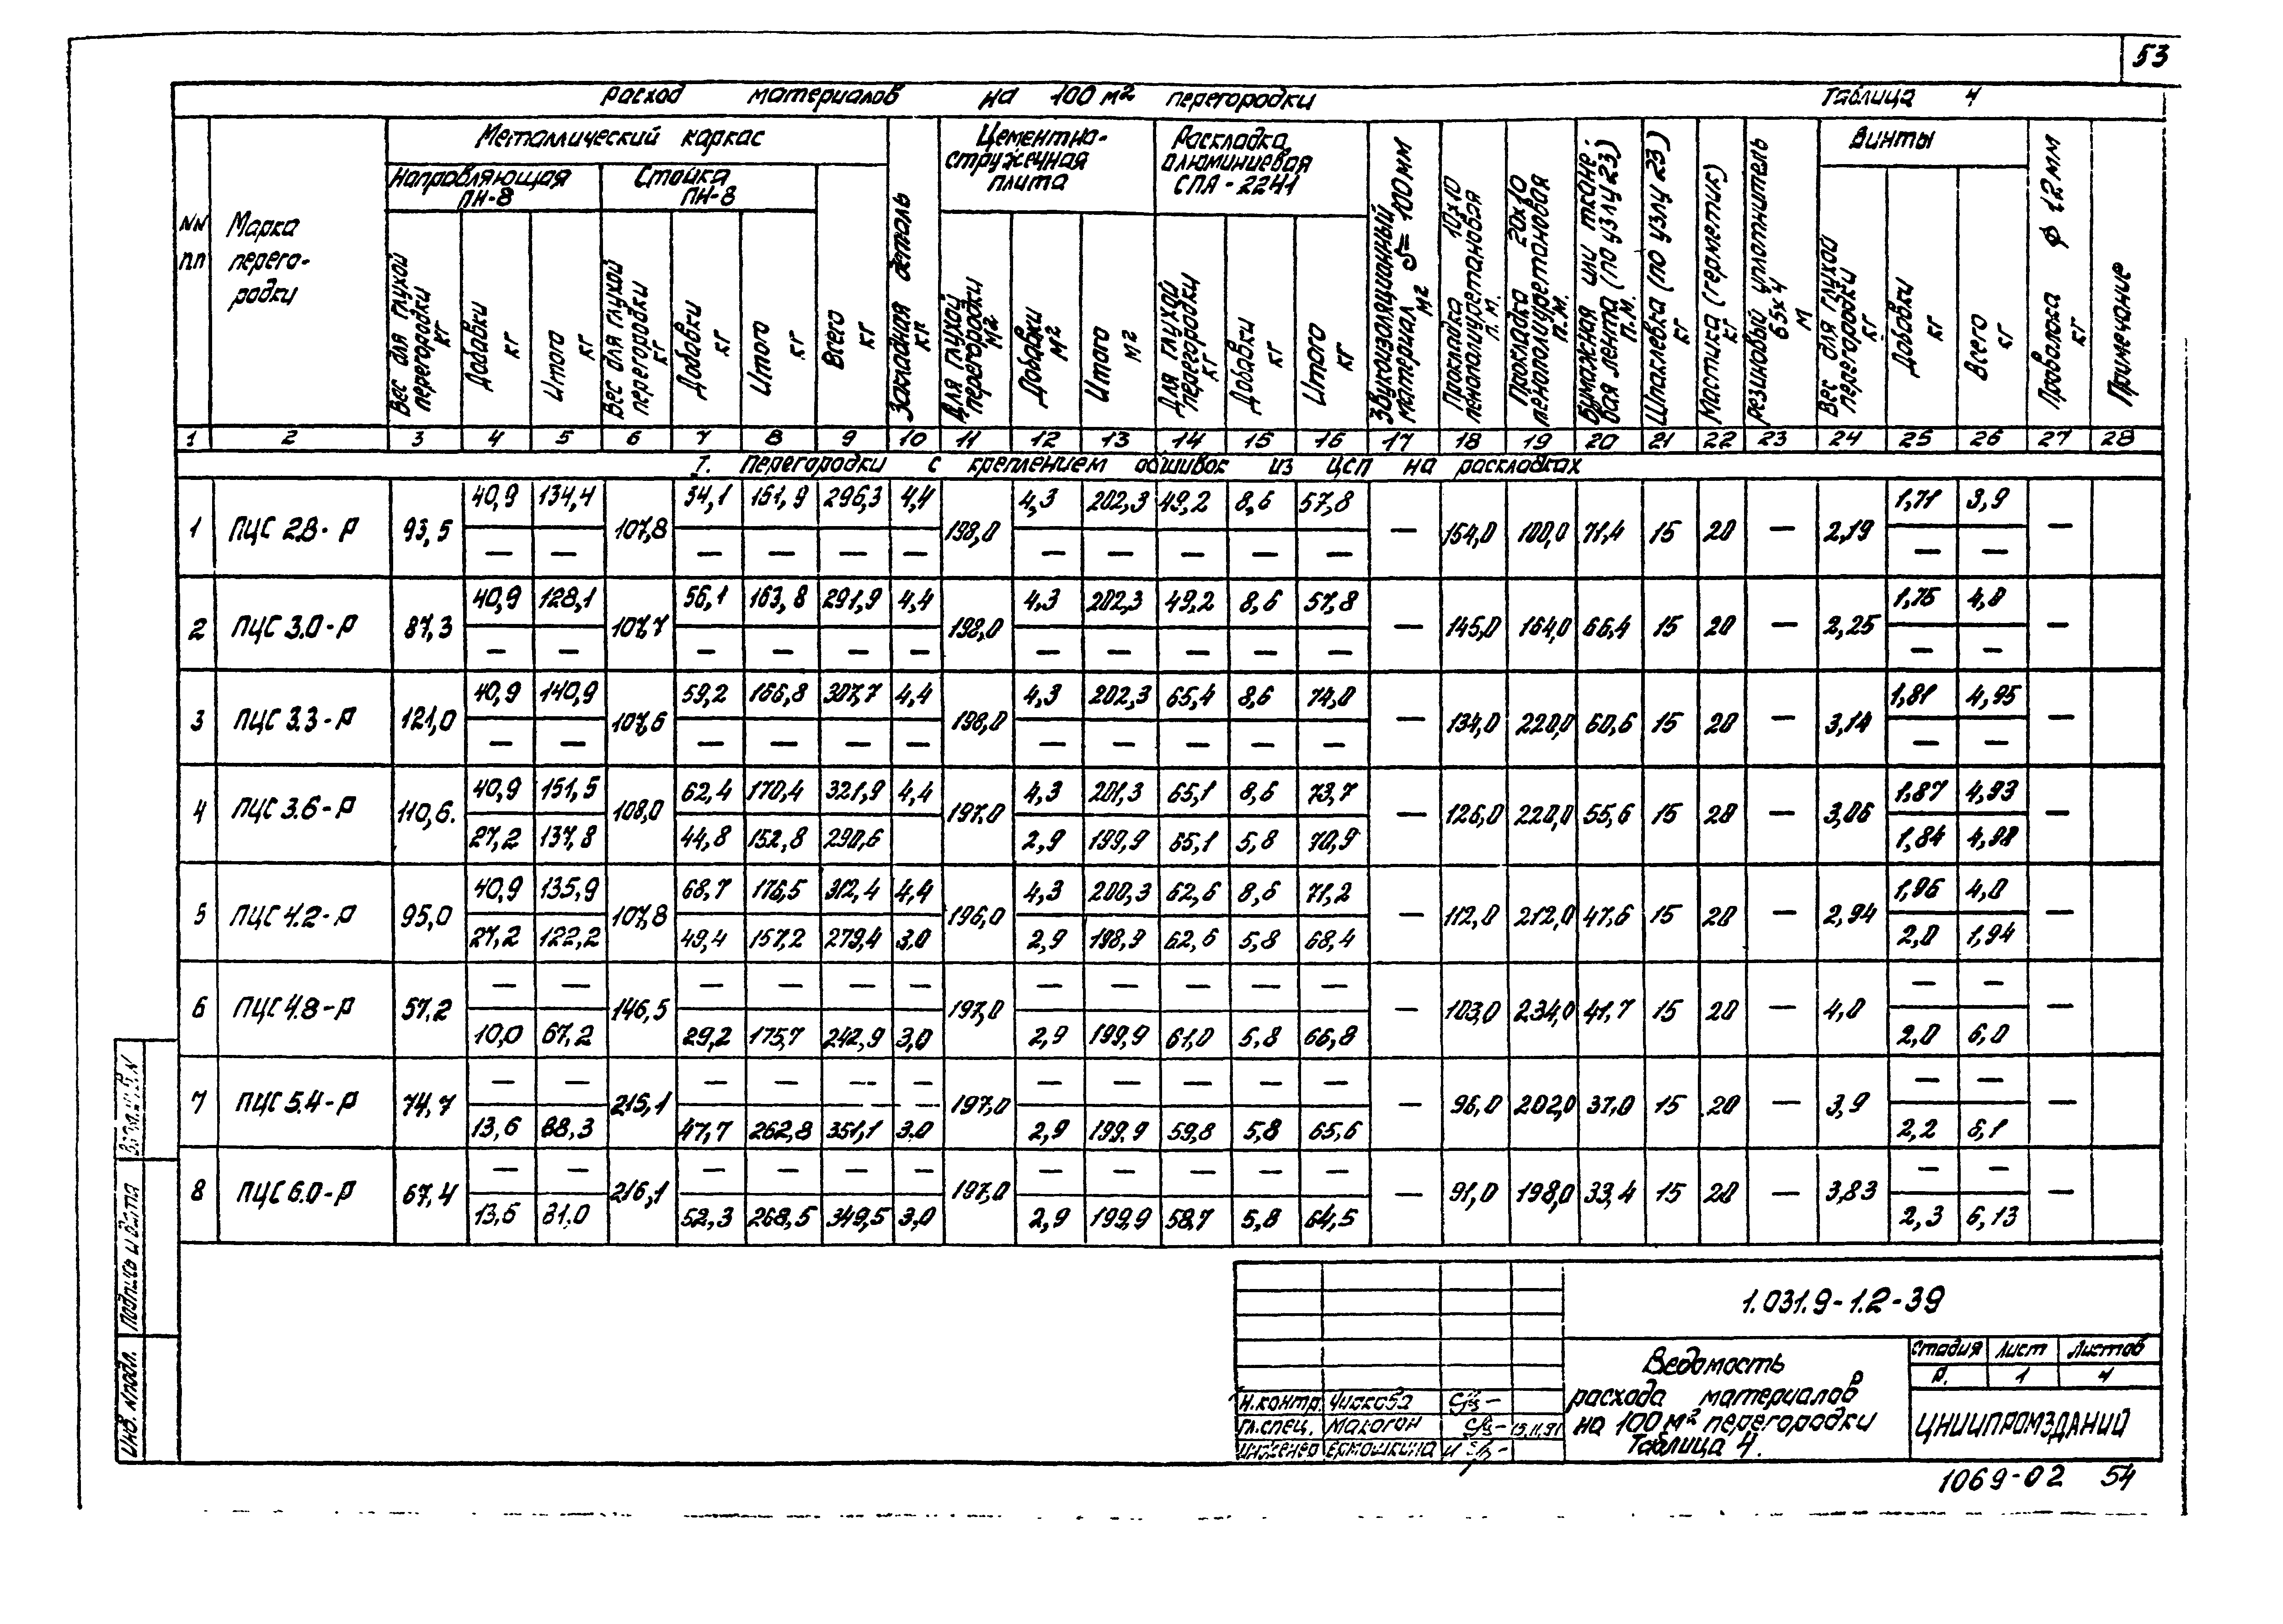 53
расход материалов на 100 м² перегородки Таблица 4
NN пп
Марка перего-родки
Металлический каркас
Направляющая ПН-8
Стойка ПН-8
Вес для глухой перегородки кг
Добавки кг
Итого кг
Вес для глухой перегородки кг
Добавки кг
Итого кг
Всего кг
Закладная деталь кг
Цементно-стружечная плита
Для глухой перегородки м²
Добавки м²
Итого м²
Раскладка алюминиевая СПА-2241
Для глухой перегородки кг
Добавки кг
Итого кг
Звукоизоляционный материал S=100мм м²
Прокладка 10х10 пенополиуретановая п.м.
Прокладка 20х10 пенополиуретановая п.м.
Бумажная или ткане-вая лента (по узлу 23) п.м.
Шпаклевка (по узлу 23) кг
Мастика (герметик) кг
Резиновый уплотнитель 65х4 м
Винты
Вес для глухой перегородки кг
Добавки кг
Всего кг
Проволока ф 1.2 мм кг
Примечание
1 2 3 4 5 6 7 8 9 10 11 12 13 14 15 16 17 18 19 20 21 22 23 24 25 26 27 28
I. Перегородки с креплением обшивок из ЦСП на раскладках
40,9 134,4 34,1 151,9 296,3 4,4 4,3 202,3 49,2 8,6 57,8 1,71 3,9
1 ПЦС 2.8-Р 93,5 107,8 198,0 — 154,0 100,0 71,4 15 20 — 2,19 —
— — — — — — — — — — — — —
40,9 128,1 56,1 163,8 291,9 4,4 4,3 202,3 49,2 8,6 57,8 1,75 4,0
2 ПЦС 3.0-Р 87,3 107,7 198,0 — 145,0 164,0 66,4 15 20 — 2,25 —
— — — — — — — — — — — — —
40,9 140,9 59,2 166,8 307,7 4,4 4,3 202,3 65,4 8,6 74,0 1,81 4,95
3 ПЦС 3.3-Р 121,0 107,6 198,0 — 134,0 220,0 60,6 15 20 — 3,14 —
— — — — — — — — — — — — —
40,9 151,5 62,4 170,4 321,9 4,4 4,3 201,3 65,1 8,6 73,7 1,87 4,93
4 ПЦС 3.6-Р 110,6. 108,0 197,0 — 126,0 220,0 55,6 15 20 — 3,06 —
27,2 137,8 44,8 152,8 290,6 2,9 199,9 65,1 5,8 70,9 1,84 4,98
40,9 135,9 68,7 176,5 312,4 4,4 4,3 200,3 62,6 8,6 71,2 1,96 4,0
5 ПЦС 4.2-Р 95,0 107,8 196,0 — 112,0 212,0 47,6 15 20 — 2,94 —
27,2 122,2 49,4 157,2 279,4 3.0 2,9 198,9 62,6 5,8 68,4 2,0 1,94
— — — — — — — — — — — — —
6 ПЦС 4.8-Р 57.2 146,5 197,0 — 103,0 234,0 41,7 15 20 — 4,0 —
10,0 67,2 29,2 175,7 242,9 3,0 2,9 199,9 61,0 5,8 66,8 2,0 6,0
— — — — — — — — — — — — —
7 ПЦС 5.4-Р 74,7 215,1 197,0 — 96,0 202,0 37,0 15 20 — 3,9 —
13,6 88,3 47,7 262,8 351,1 3.0 2,9 199,9 59,8 5,8 65,6 2,2 6,1
— — — — — — — — — — — — —
8 ПЦС 6.0-Р 67,4 216,1 197,0 — 91,0 198,0 33,4 15 20 — 3,83 —
13,6 81,0 52,3 268,5 349,5 3,0 2,9 199,9 58,7 5,8 64,5 2,3 6,13
1.031.9-1.2-39
Ведомость
расхода материалов
на 100 м² перегородки
Таблица 4.
Стадия Лист Листов
Р. 1 4
ЦНИИПРОМЗДАНИЙ
Н.контр. Чижова
Гл.спец. Макогон 15.11.91
Инженер Ермошкина
Взам. инв. N
Подпись и дата
Инв. N подл.
1069-02 54